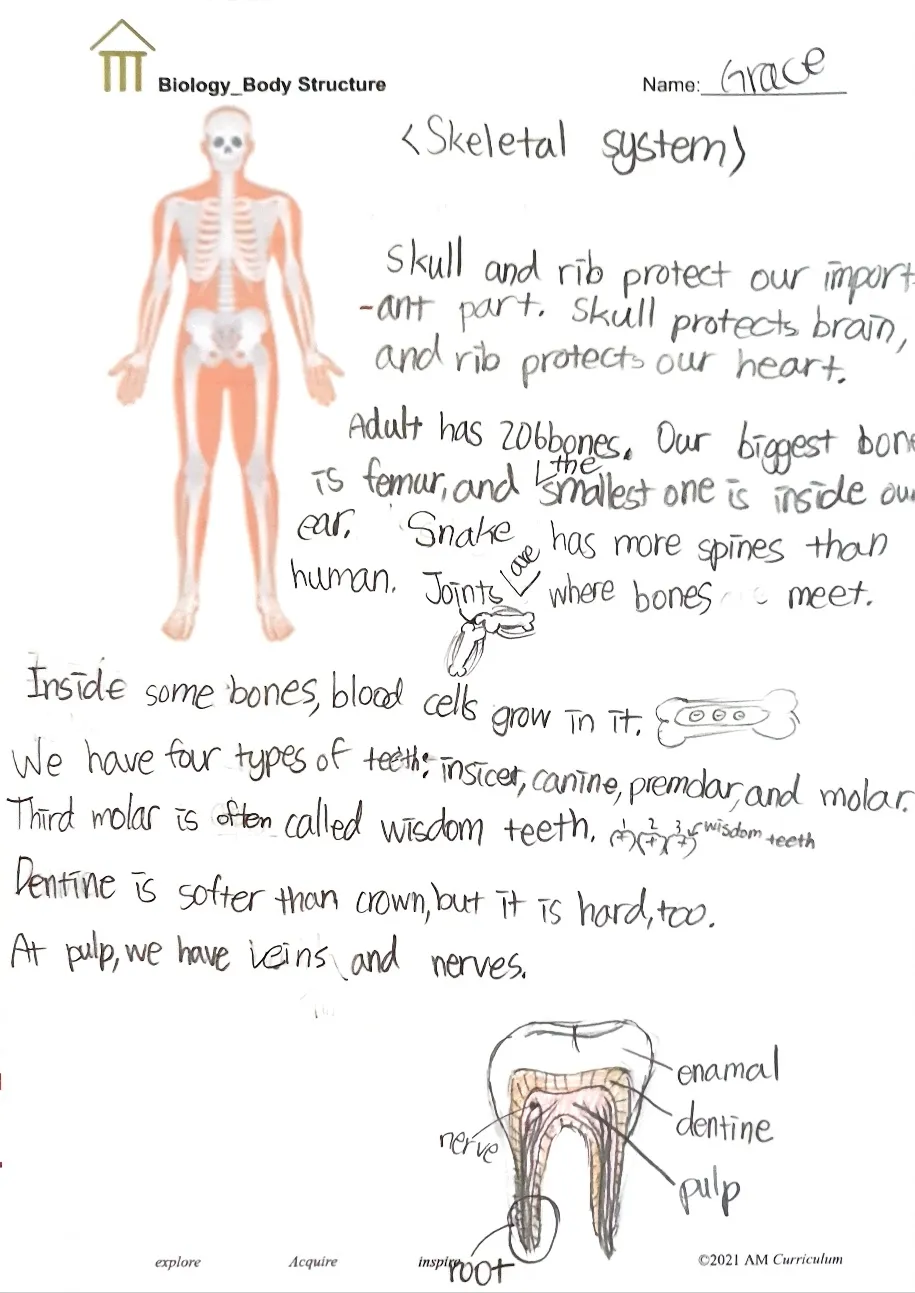 Biology_Body Structure
Name: Grace
<Skeletal system>
Skull and rib protect our import
-ant part. Skull protects brain,
and rib protects our heart.
Adult has 206bones. Our biggest bone
is femur, and the smallest one is inside our
ear. Snake has more spines than
human. Joints are where bones meet.
Inside some bones, blood cells grow in it.
We have four types of teeth: insicer, canine, premolar, and molar.
Third molar is often called wisdom teeth. 1 2 3 wisdom teeth
Dentine is softer than crown, but it is hard, too.
At pulp, we have veins and nerves.
enamal
dentine
nerve
pulp
root
explore Acquire inspire ©2021 AM Curriculum